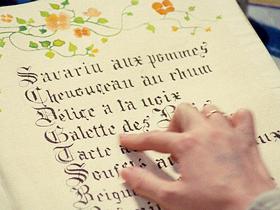 Savarin aux pommes
Chenonceau au rhum
Délice à la noix
Galette des
Tarte
Soufflé
Beigne